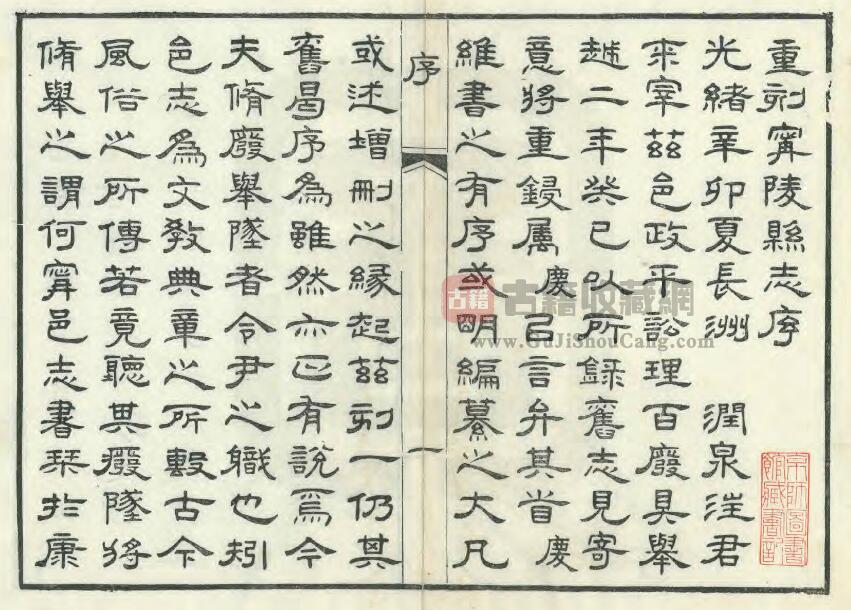 重刻甯陵縣志序
光緒辛卯夏長洲 潤泉汪君
來宰茲邑政平訟理百廢具舉
越二年癸巳以所錄舊志見寄
意將重鋟屬慶㠯言弁其首慶
維書之有序或明編纂之大凡
序
一
或述增刪之緣起茲刻一仍其
舊曷序為雖然亦正有說焉今
夫脩廢舉墜者令尹之職也矧
邑志為文教典章之所繫古今
風俗之所傳若竟聽其廢墜將
脩舉之謂何甯邑志書栞於康
京師圖書
館藏書記
古籍
古籍收藏網
www.GuJiShouCang.com